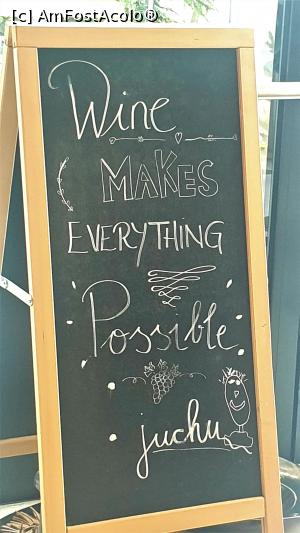 [c] AmFostAcolo®
Wine
MAKES
EVERYTHING
Possible
juchu